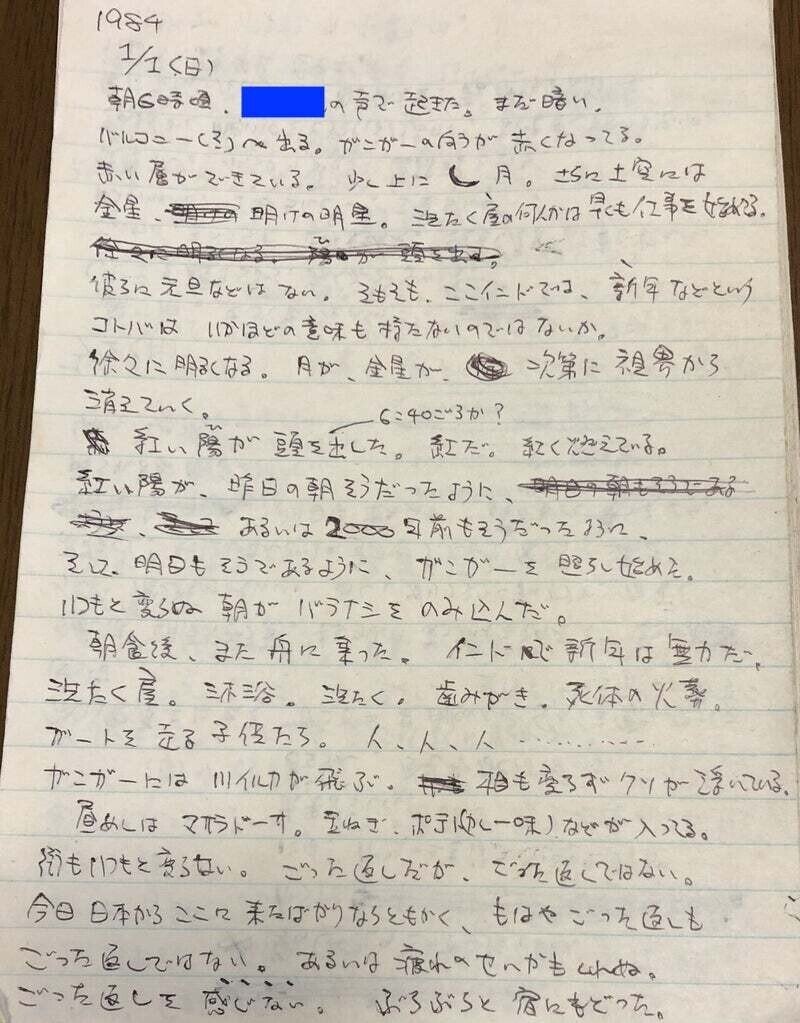 1984
1/1(日)
朝6時頃、の声で起きた。まだ暗い。
バルコニー(3)へ出る。ガンガーの向うが赤くなってる。
赤い層ができている。少し上に 月。さらに上空には
金星、明けの明星。洗たく屋の何人かは早くも仕事を始めてる。
徐々に明るくなる。陽が頭を出し。
彼らに元旦などはない。そもそも、ここインドでは、新年などという
コトバは いかほどの意味も持たないのではないか。
徐々に明るくなる。月が、金星が、次第に視界から
消えていく。
6:40ごろか?
紅い陽(ひ)が頭を出した。紅だ。紅く燃えている。
紅い陽が、昨日の朝そうだったように、明日の朝もそうである
あるいは2000年前もそうだったように、
そして、明日もそうであるように、ガンガーを照らし始めた。
いつもと変らぬ朝がバラナシをのみ込んだ。
朝食後、また舟に乗った。インドで新年は無力だ。
洗たく屋。沐浴。洗たく。歯みがき。死体の火葬。
ガートを走る子供たち。人、人、人…………
ガンガーには川イルカが飛ぶ。相も変らずクソが浮いている。
昼めしはマサラドーサ。玉ねぎ、ポテト(カレー味)などが入ってる。
街もいつもと変らない。ごった返しだが、ごった返しではない。
今日日本からここに来たばかりならともかく、もはやごった返しも
ごった返しではない。あるいは疲れのせいかもしれぬ。
ごった返しを感じない。ぶらぶらと宿にもどった。